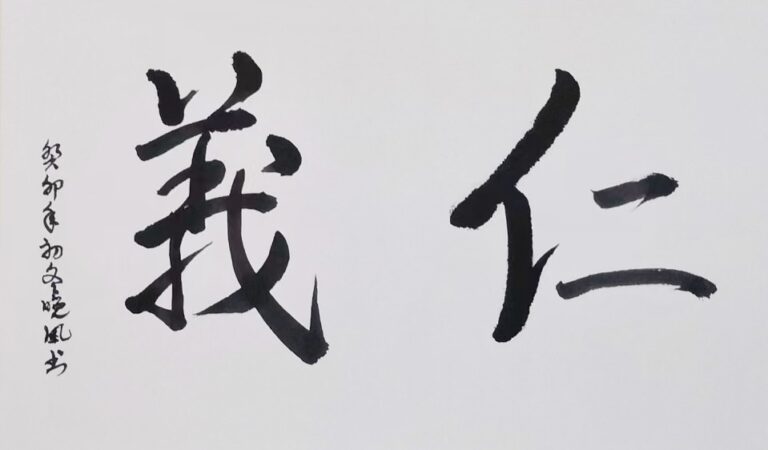 仁義
癸卯年初冬曉風书